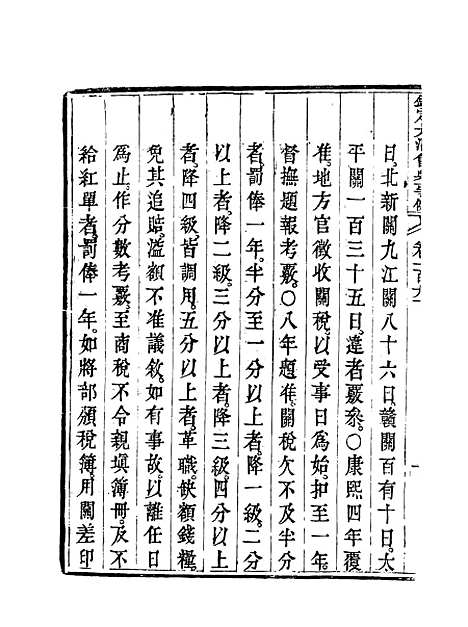 日。北新關九江關八十六日。贛關百有十日。太
平關一百三十五日。違者覈參。○康熙四年覆
准。地方官徵收關稅。以受事日爲始。扣至一年。
督撫題報考覈。○八年題准。關稅欠不及半分
者。罰俸一年。半分至一分以上者。降一級。二分
以上者。降二級。三分以上者。降三級。四分以上
者。降四級。皆調用。五分以上者。革職。缺額錢糧。
免其追賠。溢額不准議敘。如有事故。以離任日
爲止。作分數考覈。至商稅不令親塡簿冊。及不
給紅單者。罰俸一年。如將部頒稅簿。用關差印